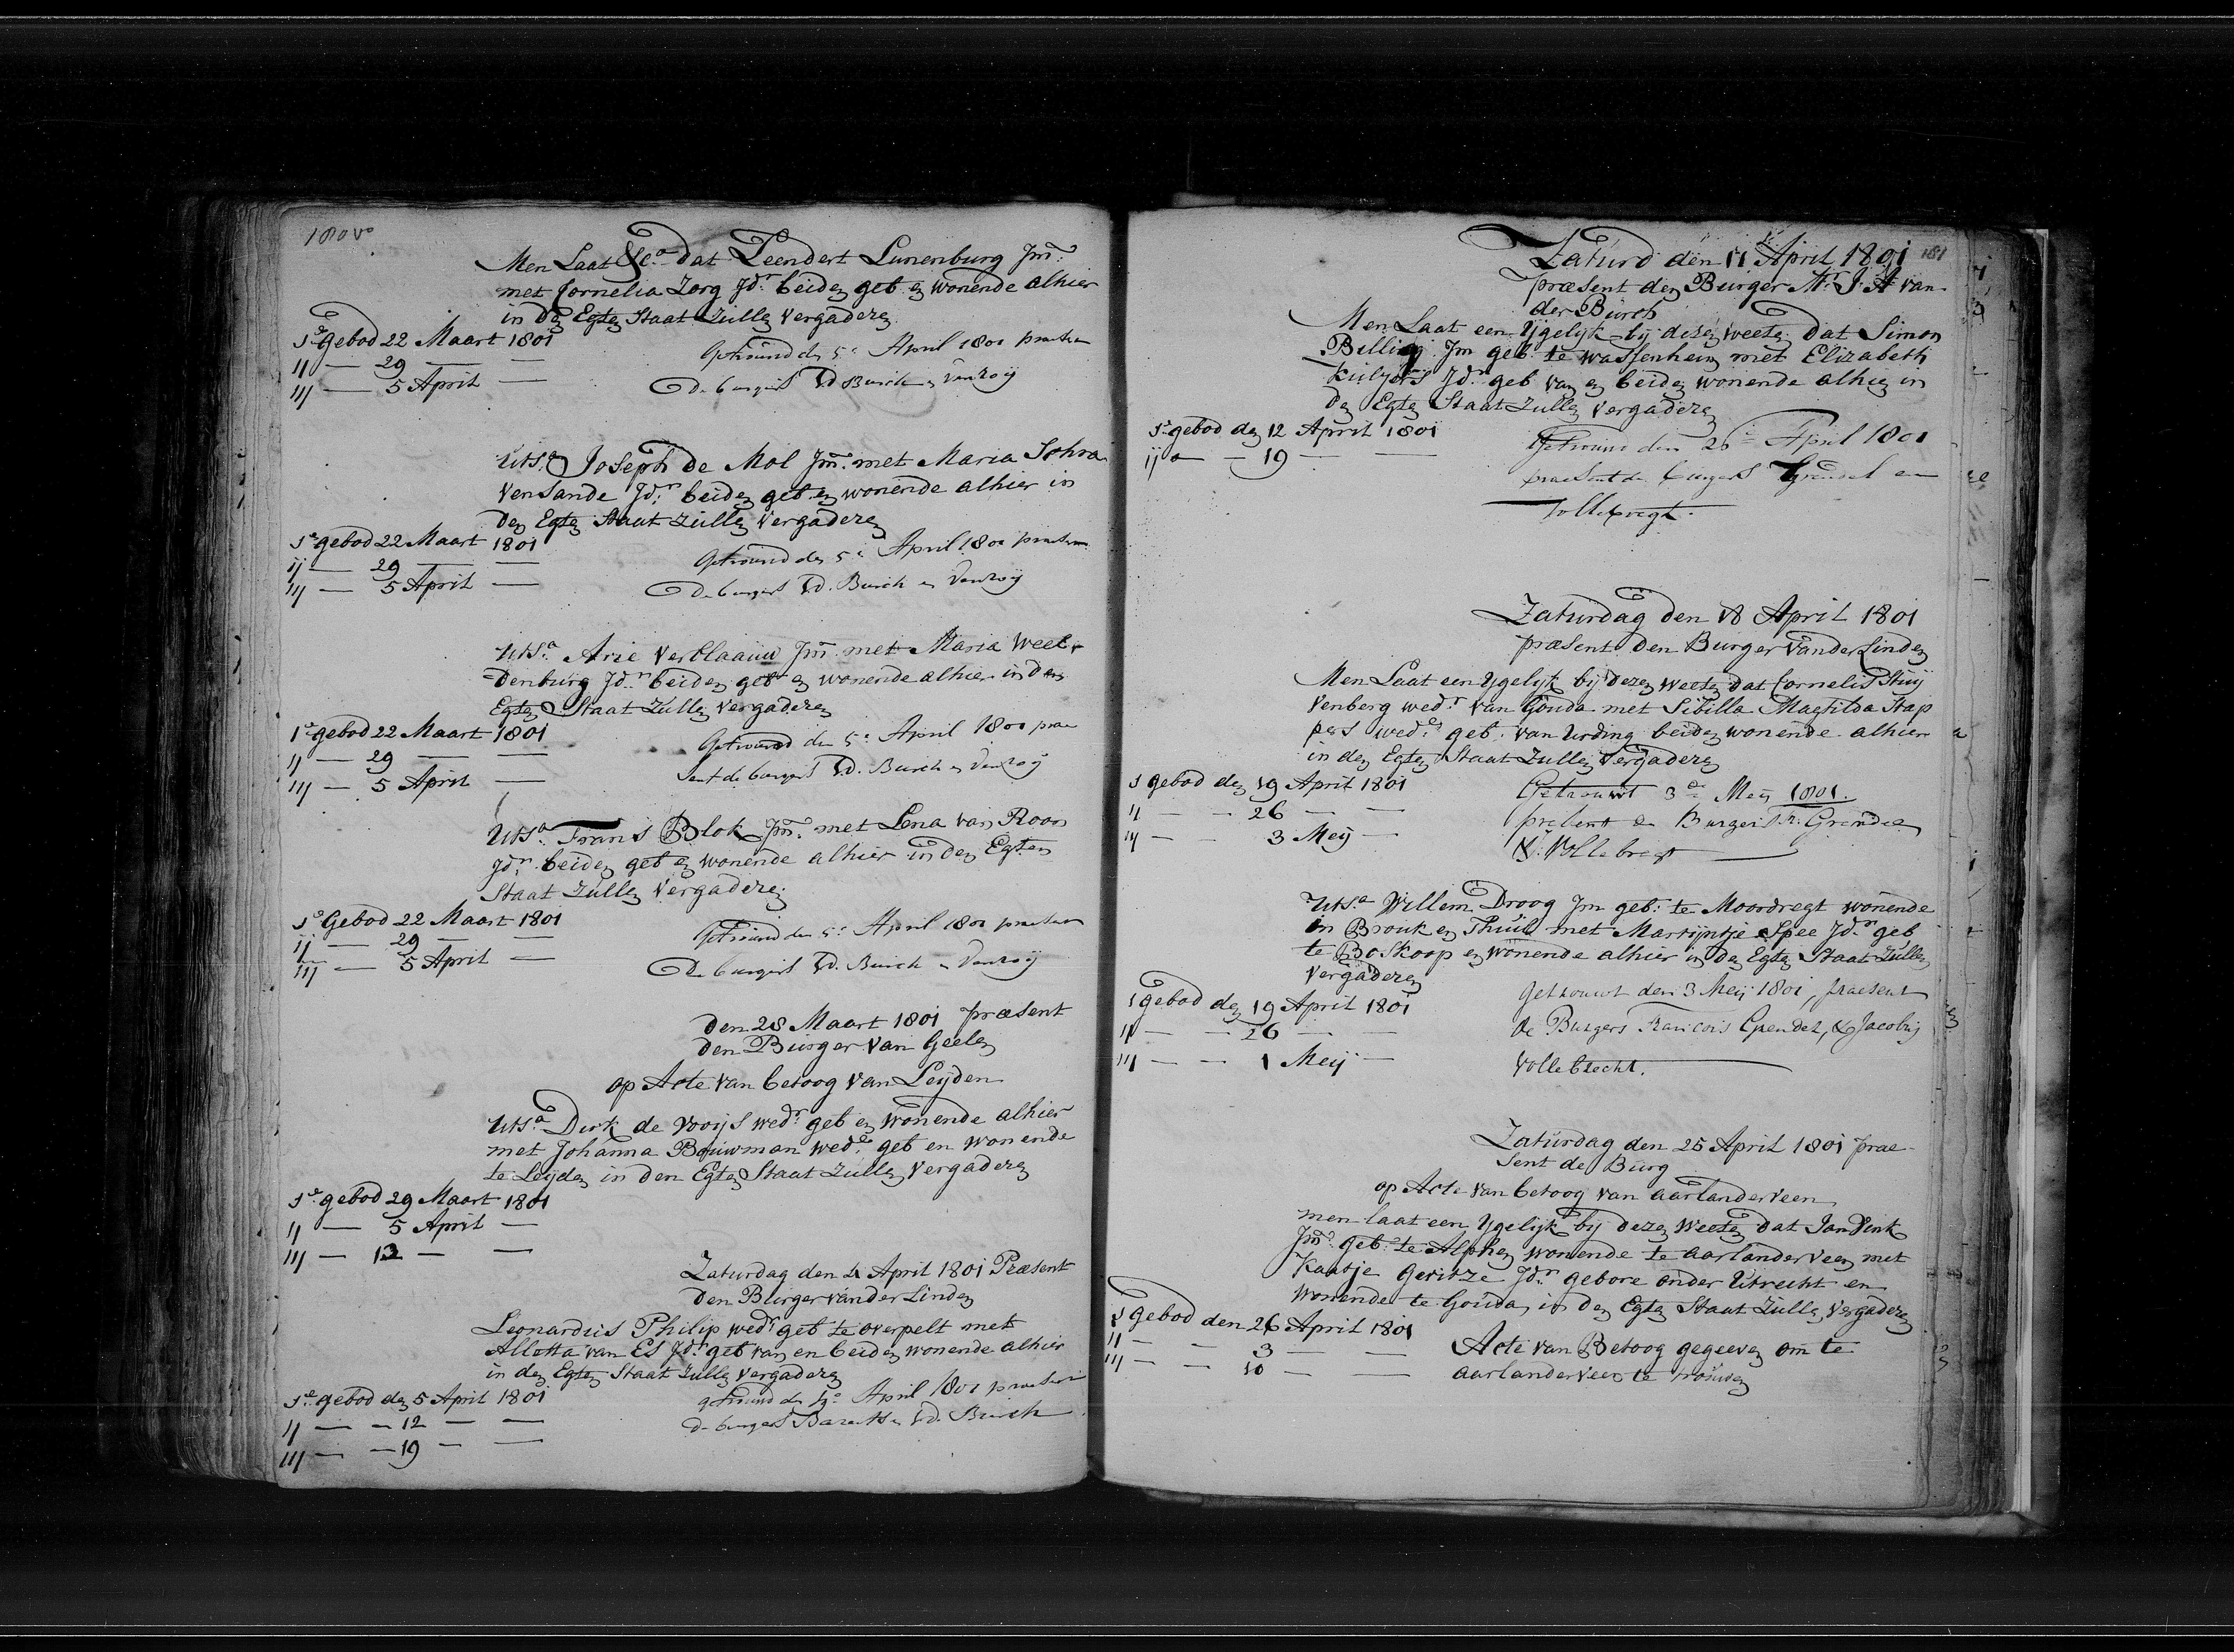 180 vo
Men Laat &ca dat Leendert Lunenburg Jm:
met Cornelia Zorg Jdr. beiden geb en wonende alhier
in den Egten Staat Zullen vergaderen
1e gebod 22 Maart 1801
ij — 29 — —
iij — 5 April —
Getrouwd den 5e April 1801 praesen
de burgers vd Burch en Vanroij
Utsa. Joseph de Mol Jm. met Maria Schra
vensande Jdr. beiden geb en wonende alhier in
den Egten Staat Zullen vergaderen
1e gebod 22 Maart 1801
ij — 29 — —
iij — 5 April —
Getrouwd den 5e April 1801 praesen
de burgers vd. Burch en Vanroij
Utsa. Arie Verblaauw Jm met Maria Weel
denburg Jdr. beiden geb en wonende alhier in den
Egten Staat Zullen vergaderen
1e gebod 22 Maart 1801
ij — 29 — —
iij — 5 April —
Getrouwd den 5e April 1801 prae
sent de burgers vd. Burch en Vanroij
Utsa. Frans Blok Jm. met Lena van Roon
Jdr. beiden geb en wonende alhier in den Egten
Staat Zullen vergaderen
1e Gebod 22 Maart 1801
ij — 29 — —
iij — 5 April —
Getrouwd den 5e April 1801 praesen
de burgers vd. Burch en Vanroij
den 28 Maart 1801 præsent
den Burger van Geelen
op Acte van betoog van Leijden
Utsa. Dirk de Vooijs wedr. geb en wonende alhier
met Johanna Bouwman wede. geb en wonende
te Leijden in den Egten Staat Zullen vergaderen
1e gebod 29 Maart 1801
ij — 5 April —
iij — 12 — —
Zaturdag den 4 April 1801 Præsent
den Burger van der Linden
Leonardus Philip wedr geb te overpelt met
Allotta van Es Jdr geb van en beiden wonende alhier
in den Egten Staat Zullen vergaderen
1e gebod den 5 April 1801
ij — — 12 — —
iij — — 19 — —
getrouwd den 19e April 1801 praesen
de burgers en vd. Burch
181
Zaturd den 11 April 1801
præsent den Burger Mr. J: A van
der Burch
Men Laat een Ygelijk bij dezen weeten dat Simon
Billing Jm geb. te wassenhein met Elizabeth
Kuijers Jdr. geb van en beiden wonende alhier in
den Egten Staat Zullen vergaderen
1e gebod den 12 April 1801
ij — — 19 — —
Getrouwd den 26e April 1801
praesent de burgers Grendel en
Vollebregt.
Zaturdag den 18 April 1801
præsent den Burger van der Linden
Men Laat een Ygelijk bij dezen weeten dat Cornelis Stuij
venberg wedr. van Gouda met Sibilla Magtilda Stap
pers wede. geb. van Urding beiden wonende alhier
in den Egten Staat Zullen vergaderen
1 gebod den 19 April 1801
ij — — 26 — —
iij — — 3 Meij —
Getrouwt 3de Meij 1801.
present de Burgers Fr: Grendel
J: Vollebregt
Utsa Willem Droog Jm geb: te Moordregt wonende
in Brouk en Thuil met Marijntje Spee Jdr. geb
te Boskoop en wonende alhier in den Egten Staat Zullen
vergaderen
1 gebod den 19 April 1801
ij — — 26 — —
iij — — 1 Meij —
Getrouwt den 3 Meij 1801, praesent
de Burgers Francois Grendel, & Jacobus
Vollebrecht.
Zaturdag den 25 April 1801 præ-
sent de Burg
op Acte van betoog van aarlanderveen
men laat een Ygelijk bij dezen Weeten dat Jan Vink
Jm. geb: te Alphen wonende te aarlanderveen met
Kaatje Geritze Jdr. gebore onder Utrecht en
wonende te Gouda, in den Egten Staat Zullen vergaderen
1 gebod den 26 April 1801
ij — — 3 — —
iij — — 10 — —
Acte van Betoog gegeeven om te
aarlanderveen te trouwen